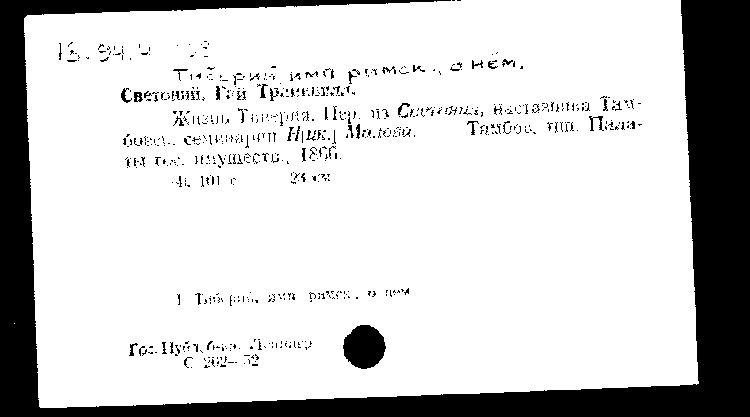 18.94.4
Тиберий, имп римск., о нём.
Светоний, Гай Транквилл.
Жизнь Тиверия. Пер. из Светония, наставника Там-
бовск. семинарии Н[ик.] Малова. Тамбов, тип. Пала-
ты гос. имуществ, 1866.
101 с 23 см
1 Тиберий, имп римск., о нем
Гос. Публ. б-ка. Ленингр
С 202—52